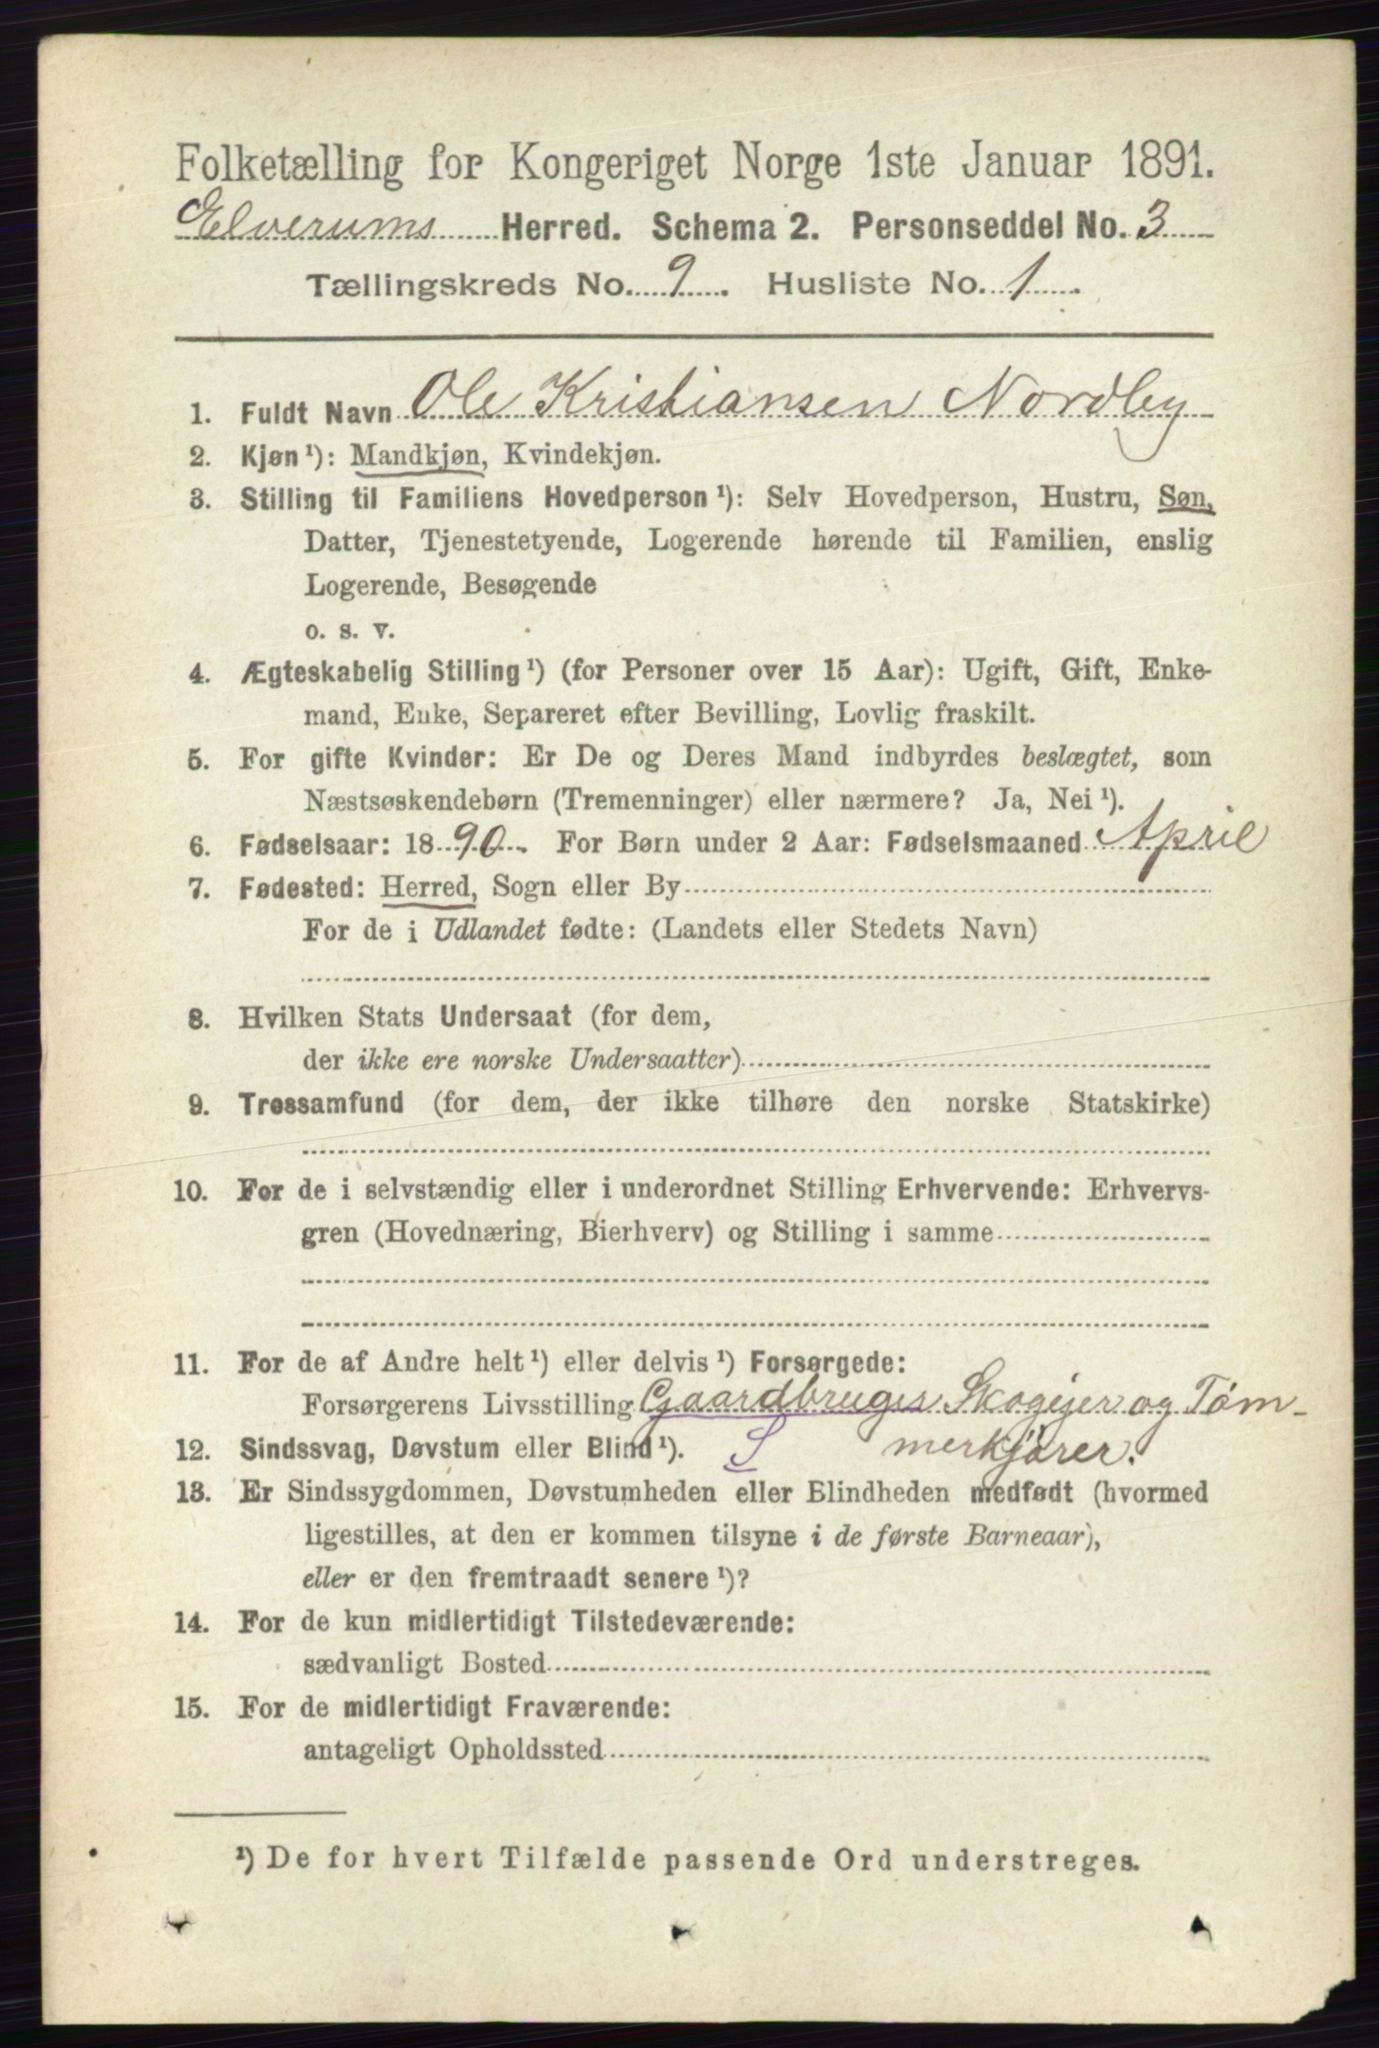 Folketælling for Kongeriget Norge 1ste Januar 1891.
Elverums Herred. Schema 2. Personseddel No. 3
Tællingskreds No. 9. Husliste No. 1.
1. Fuldt Navn Ole Kristiansen Nordby
2. Kjøn¹): Mandkjøn, Kvindekjøn.
3. Stilling til Familiens Hovedperson¹): Selv Hovedperson, Hustru, Søn,
Datter, Tjenestetyende, Logerende hørende til Familien, enslig
Logerende, Besøgende
o. s. v.
4. Ægteskabelig Stilling¹) (for Personer over 15 Aar): Ugift, Gift, Enke-
mand, Enke, Separeret efter Bevilling, Lovlig fraskilt.
5. For gifte Kvinder: Er De og Deres Mand indbyrdes beslægtet, som
Næstsøskendebørn (Tremenninger) eller nærmere? Ja, Nei¹).
6. Fødselsaar: 1890. For Børn under 2 Aar: Fødselsmaaned April
7. Fødested: Herred, Sogn eller By
For de i Udlandet fødte: (Landets eller Stedets Navn)
8. Hvilken Stats Undersaat (for dem,
der ikke ere norske Undersaatter)
9. Trossamfund (for dem, der ikke tilhøre den norske Statskirke)
10. For de i selvstændig eller i underordnet Stilling Erhvervende: Erhvervs-
gren (Hovednæring, Bierhverv) og Stilling i samme
11. For de af Andre helt¹) eller delvis¹) Forsørgede:
Forsørgerens Livsstilling Gaardbruger Skogejer og Tøm-
12. Sindssvag, Døvstum eller Blind¹). S merkjører.
13. Er Sindssygdommen, Døvstumheden eller Blindheden medfødt (hvormed
ligestilles, at den er kommen tilsyne i de første Barneaar),
eller er den fremtraadt senere¹)?
14. For de kun midlertidigt Tilstedeværende:
sædvanligt Bosted
15. For de midlertidigt Fraværende:
antageligt Opholdssted
¹) De for hvert Tilfælde passende Ord understreges.